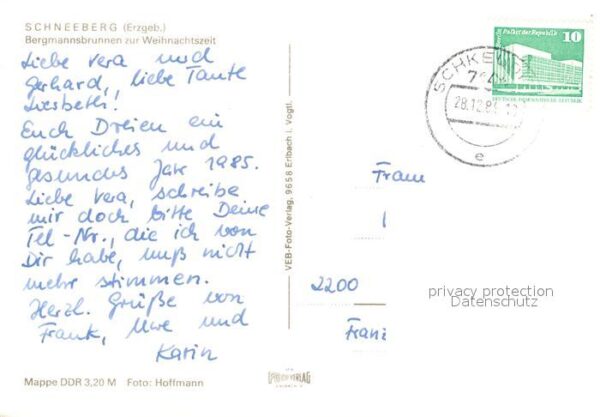 SCHNEEBERG (Erzgeb.)
Bergmannsbrunnen zur Weihnachtszeit
Liebe Vera und
Gerhard, liebe Tante
Liesbeth!
Euch Dreien ein
glückliches und
gesundes Jahr 1985.
Liebe Vera, schreibe
mir doch bitte Deine
Tel-Nr., die ich von
Dir habe, muß nicht
mehr stimmen.
Herzl. Grüße von
Frank, Uwe und
Karin
Mappe DDR 3,20 M Foto: Hoffmann
VEB-Foto-Verlag, 9658 Erlbach i. Vogtl.
10
Palast der Republik
DEUTSCHE DEMOKRATISCHE REPUBLIK
SCHKEU
28.12.8
e
Frau
2200
privacy protection
Datenschutz
Franz
VERLAG